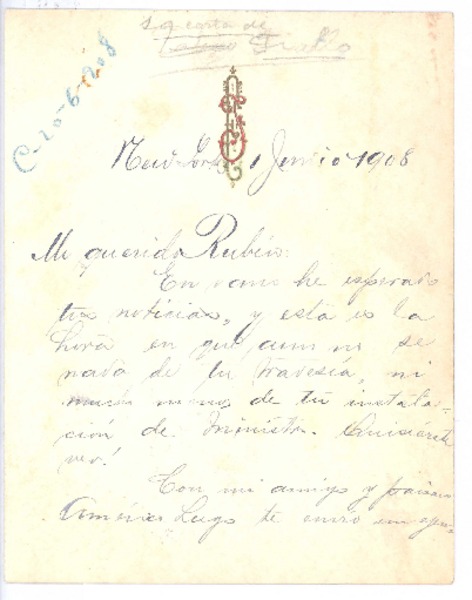 1ª carta de
Trullo
C-25-6-908
New-York, 1 Junio 1908
Mi querido Rubén:
En vano he esperado
tus noticias, y esta es la
hora en que aun no se
nada de tu travesía, ni
mucho menos de tu instala-
ción de Ministro.
ver!
Con mi amigo y paisano
Américo Lugo te envio un